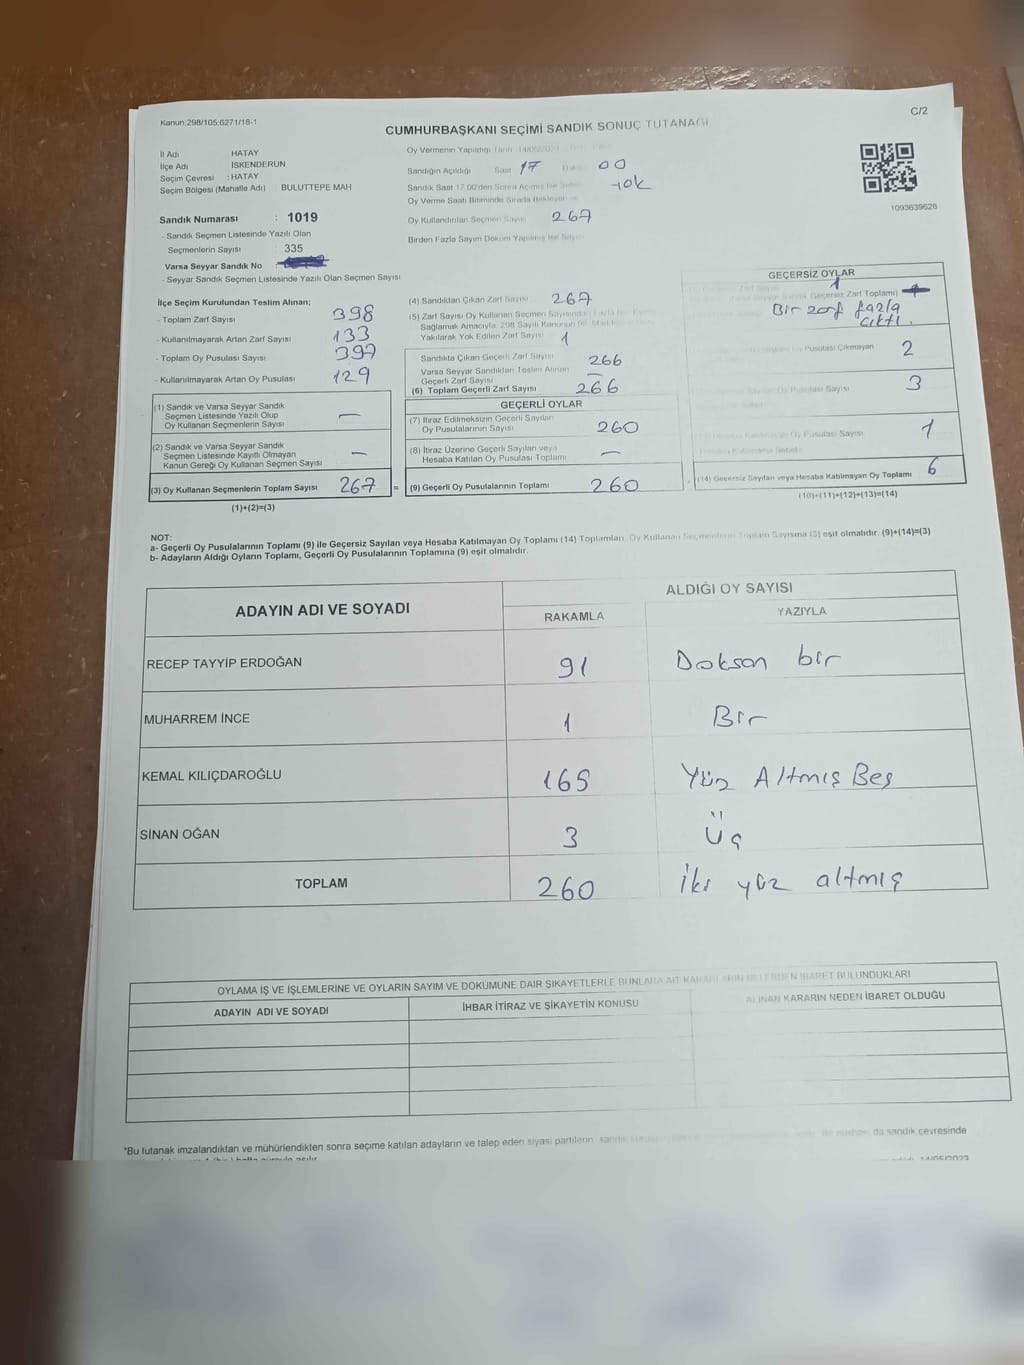 Kanun:298/105;6271/18-1
C/2
CUMHURBAŞKANI SEÇİMİ SANDIK SONUÇ TUTANAĞI
İl Adı HATAY
İlçe Adı İSKENDERUN
Seçim Çevresi : HATAY
Seçim Bölgesi (Mahalle Adı) BULUTTEPE MAH
Sandık Numarası : 1019
- Sandık Seçmen Listesinde Yazılı Olan
Seçmenlerin Sayısı : 335
Varsa Seyyar Sandık No
- Seyyar Sandık Seçmen Listesinde Yazılı Olan Seçmen Sayısı
Oy Vermenin Yapıldığı Tarih 14/05/2023
Sandığın Açıldığı Saat 17 00
Sandık Saat 17.00'den Sonra Açılmış İse Sebebi yok
Oy Verme Saati Bitiminde Sırada Bekleyen
Oy Kullandırılan Seçmen Sayısı 267
Birden Fazla Sayım Döküm Yapılmış İse Sayısı
1093639628
İlçe Seçim Kurulundan Teslim Alınan;
- Toplam Zarf Sayısı 398
- Kullanılmayarak Artan Zarf Sayısı 133
- Toplam Oy Pusulası Sayısı 397
- Kullanılmayarak Artan Oy Pusulası 129
(1) Sandık ve Varsa Seyyar Sandık
Seçmen Listesinde Yazılı Olup
Oy Kullanan Seçmenlerin Sayısı —
(2) Sandık ve Varsa Seyyar Sandık
Seçmen Listesinde Kayıtlı Olmayan
Kanun Gereği Oy Kullanan Seçmen Sayısı —
(3) Oy Kullanan Seçmenlerin Toplam Sayısı 267 =
(1)+(2)=(3)
(4) Sandıktan Çıkan Zarf Sayısı 267
(5) Zarf Sayısı Oy Kullanan Seçmen Sayısından
Sağlamak Amacıyla, 298 Sayılı Kanunun 98.
Yakılarak Yok Edilen Zarf Sayısı 1
Sandıkta Çıkan Geçerli Zarf Sayısı 266
Varsa Seyyar Sandıktan Teslim Alınan
Geçerli Zarf Sayısı —
(6) Toplam Geçerli Zarf Sayısı 266
GEÇERLİ OYLAR
(7) İtiraz Edilmeksizin Geçerli Sayılan
Oy Pusulalarının Sayısı 260
(8) İtiraz Üzerine Geçerli Sayılan veya
Hesaba Katılan Oy Pusulası Toplamı —
(9) Geçerli Oy Pusulalarının Toplamı 260
GEÇERSİZ OYLAR
1
Geçersiz Zarf Toplamı)
Bir zarf fazla
çıktı.
Oy Pusulası Çıkmayan 2
Oy Pusulası Sayısı 3
Oy Pusulası Sayısı 1
(14) Geçersiz Sayılan veya Hesaba Katılmayan Oy Toplamı 6
(10)+(11)+(12)+(13)=(14)
NOT:
a- Geçerli Oy Pusulalarının Toplamı (9) ile Geçersiz Sayılan veya Hesaba Katılmayan Oy Toplamı (14) Toplamları, Oy Kullanan Seçmenlerin Toplam Sayısına (3) eşit olmalıdır. (9)+(14)=(3)
b- Adayların Aldığı Oyların Toplamı, Geçerli Oy Pusulalarının Toplamına (9) eşit olmalıdır.
ADAYIN ADI VE SOYADI
ALDIĞI OY SAYISI
RAKAMLA YAZIYLA
RECEP TAYYİP ERDOĞAN 91 Doksan bir
MUHARREM İNCE 1 Bir
KEMAL KILIÇDAROĞLU 165 Yüz Altmış Beş
SİNAN OĞAN 3 Üç
TOPLAM 260 İki yüz altmış
OYLAMA İŞ VE İŞLEMLERİNE VE OYLARIN SAYIM VE DÖKÜMÜNE DAİR ŞİKAYETLERLE BUNLARA AİT KARARLARIN NELERDEN İBARET BULUNDUKLARI
ADAYIN ADI VE SOYADI
İHBAR İTİRAZ VE ŞİKAYETİN KONUSU
ALINAN KARARIN NEDEN İBARET OLDUĞU
*Bu tutanak imzalandıktan ve mühürlendikten sonra seçime katılan adayların ve talep eden siyasi partilerin da sandık çevresinde
14/05/2023